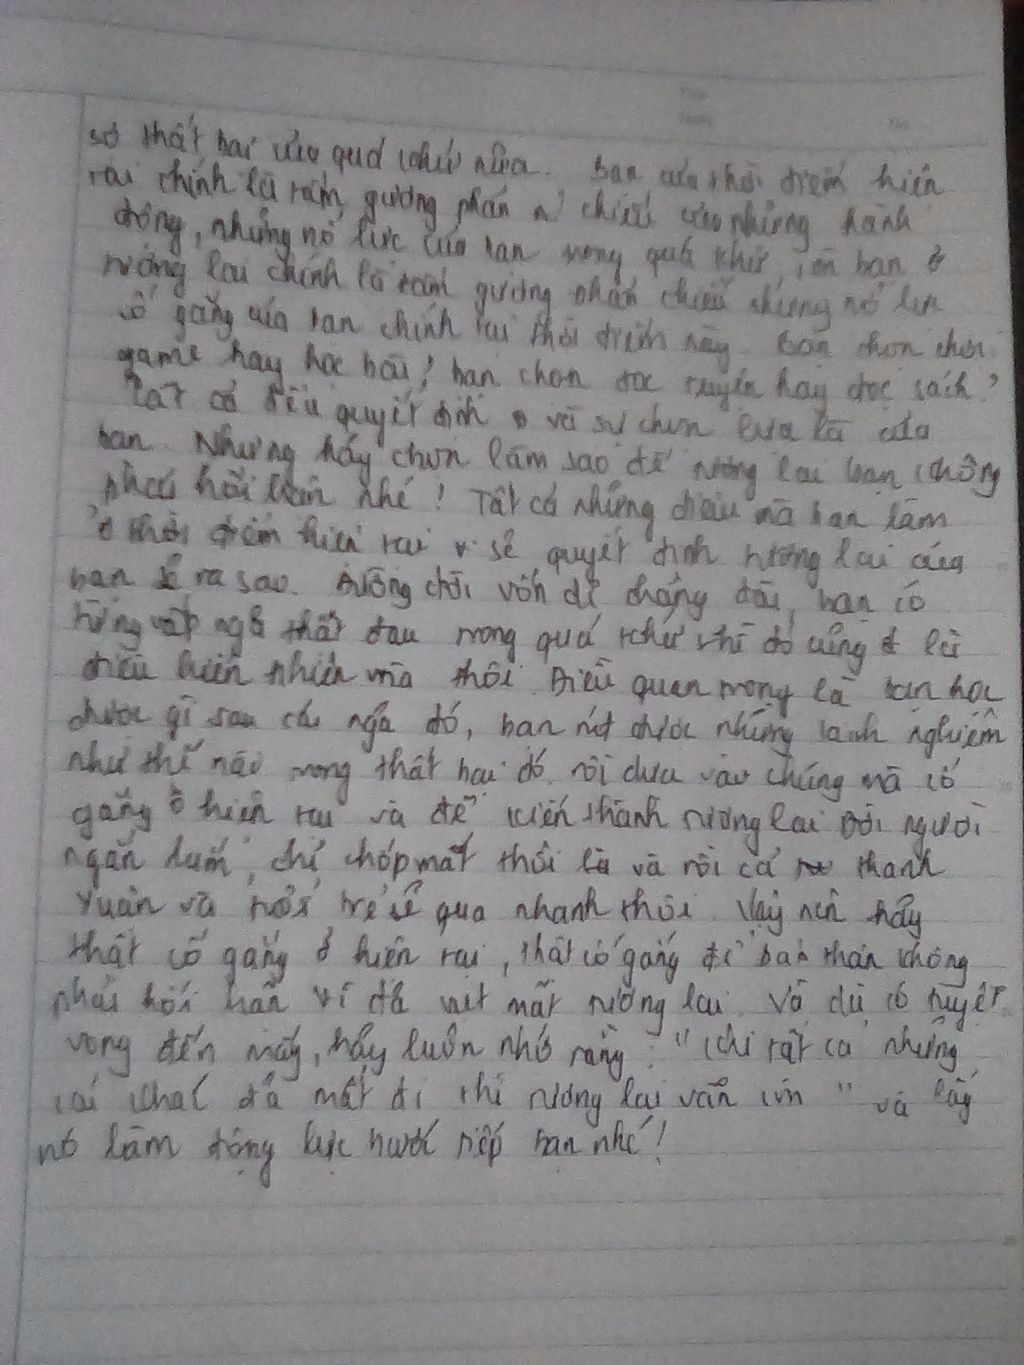 sợ thất bại của quá khứ nữa. Bạn của thời điểm hiện
tại chính là tấm gương phản chiếu của những hành
động, những nỗ lực của bạn trong quá khứ, còn bạn ở
tương lai chính là tấm gương phản chiếu những nỗ lực
cố gắng của bạn chính tại thời điểm này. Bạn chọn chơi
game hay học bài? bạn chọn đọc truyện hay đọc sách?
Tất cả đều quyết định và sự chọn lựa là của
bạn. Nhưng hãy chọn làm sao để tương lai bạn không
phải hối hận nhé! Tất cả những điều mà bạn làm
ở thời điểm hiện tại sẽ quyết định tương lai của
bạn sẽ ra sao. Đường đời vốn dĩ chẳng dài, bạn có
từng vấp ngã thật đau trong quá khứ thì đó cũng là
điều hiển nhiên mà thôi. Điều quan trọng là bạn học
được gì sau cú ngã đó, bạn rút được những kinh nghiệm
như thế nào trong thất bại đó rồi dựa vào chúng mà cố
gắng ở hiện tại và để kiến thành tương lai. Đời người
ngắn lắm, chỉ chớp mắt thôi là và rồi cả thanh
xuân và tuổi trẻ sẽ qua nhanh thôi. Vậy nên hãy
thật cố gắng ở hiện tại, thật cố gắng để bản thân không
phải hối hận vì đã vụt mất tương lai. Và dù có tuyệt
vọng đến mấy, hãy luôn nhớ rằng: "khi tất cả những
cái khác đã mất đi thì tương lai vẫn còn" và lấy
nó làm động lực bước tiếp bạn nhé!